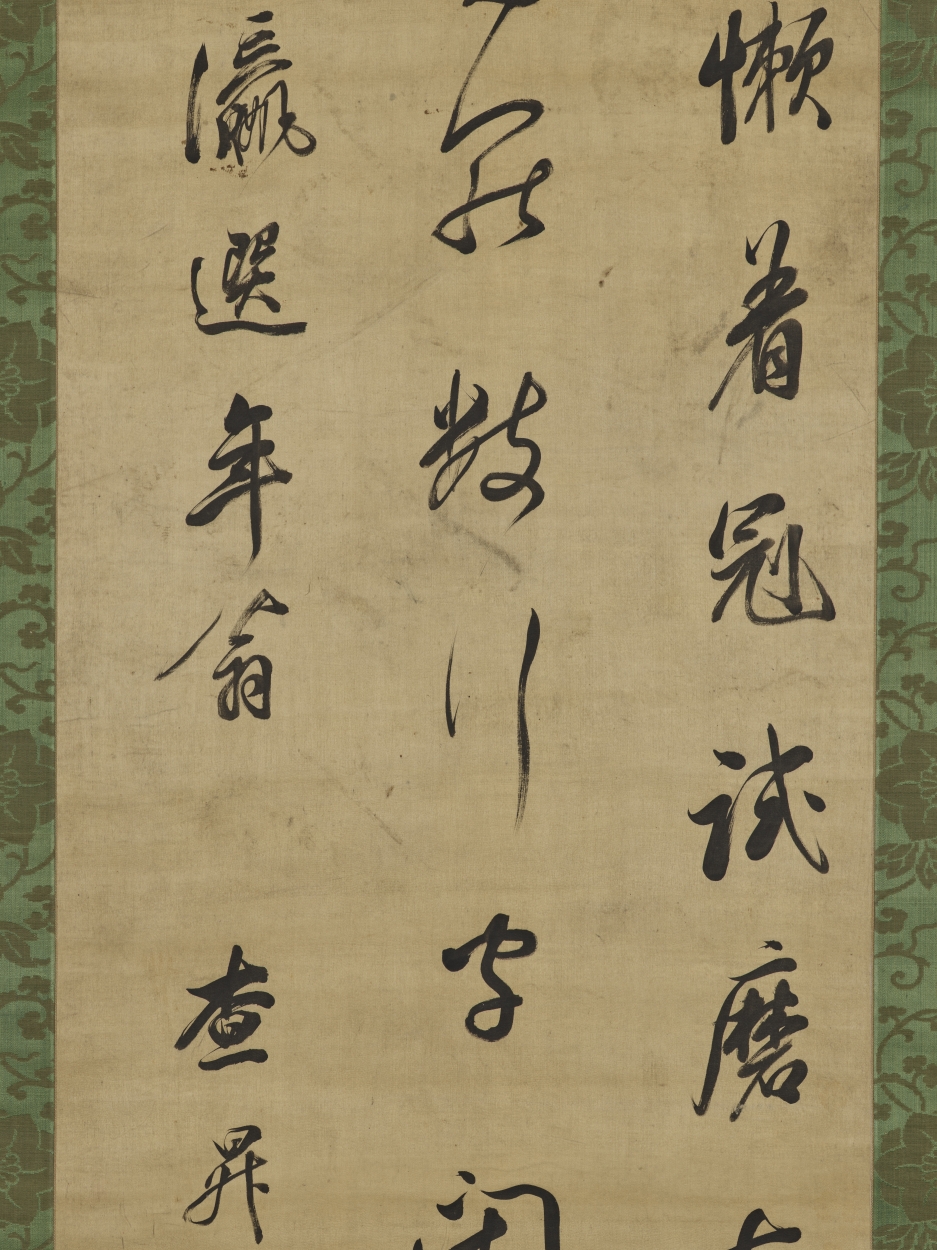 懶着冠試磨
罷數行字閑
瀛選年翁 查昇